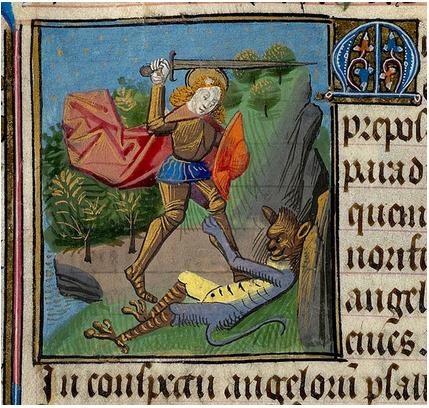 M
prepos
parad
quem
norifi
angel
ciues.
In conspectu angelorū psall